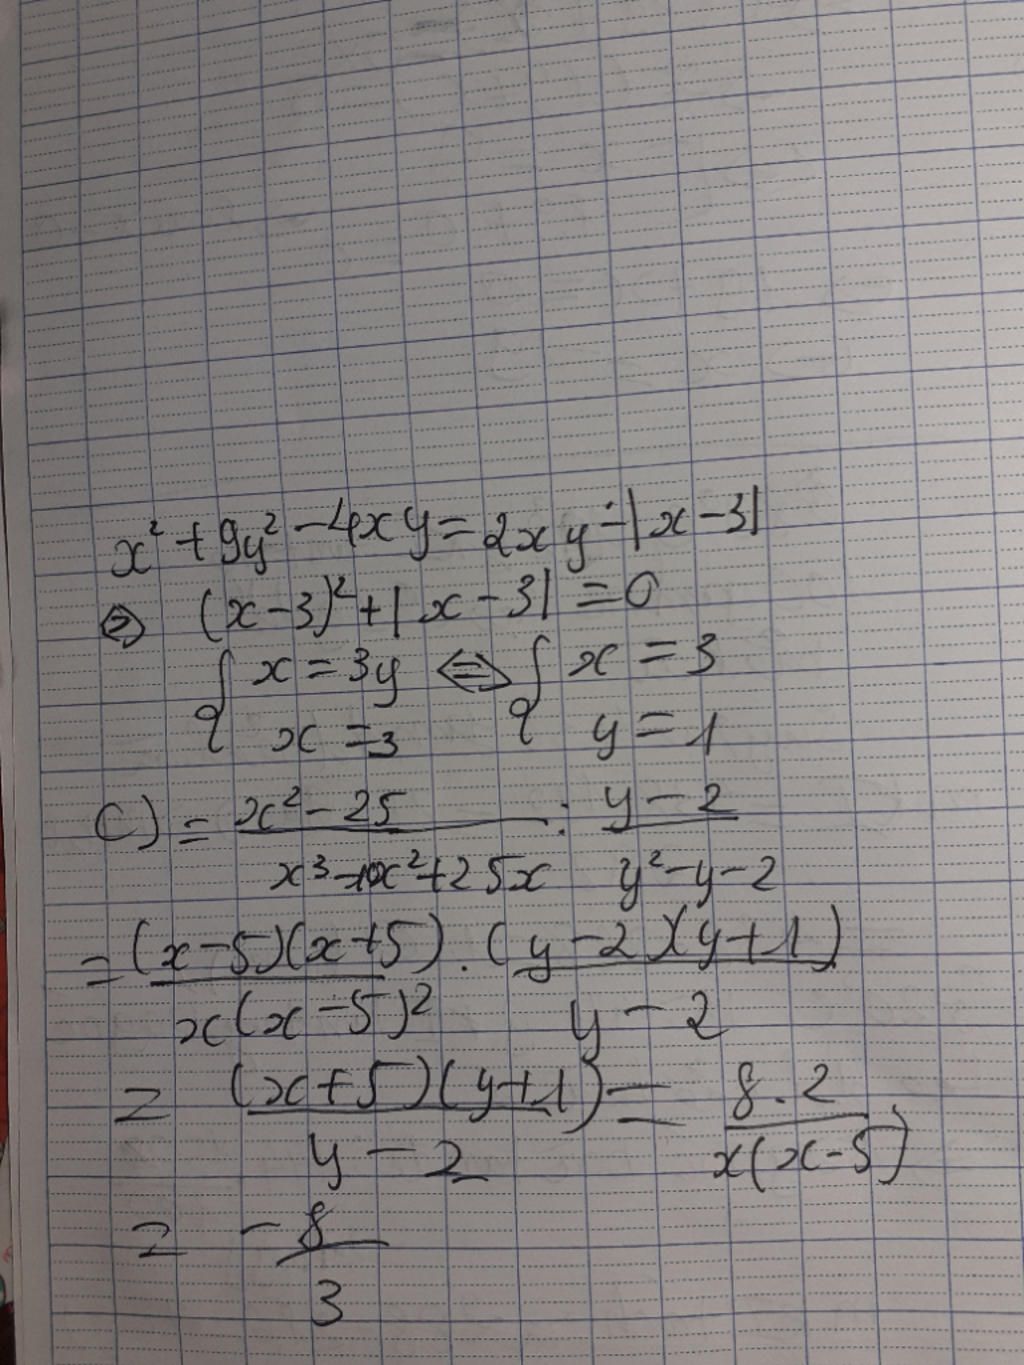 x² + 9y² - 4xy = 2xy - |x - 3|
⇔ (x - 3)² + |x - 3| = 0
{ x = 3y ⇔ { x = 3
x = 3 y = 1
C) = (x² - 25)/(x³ - 10x² + 25x) : (y - 2)/(y² - y - 2)
= (x - 5)(x + 5)/x(x - 5)² . (y - 2)(y + 1)/(y - 2)
= (x + 5)(y + 1)/(y - 2) = 8.2/x(x - 5)
= -8/3